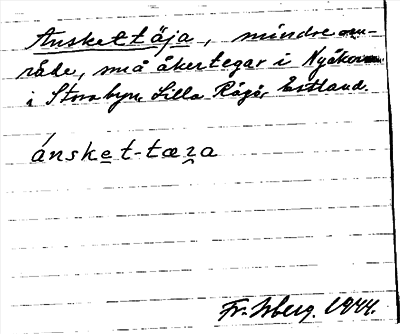 Anskettäja, mindre om-
råde, små åkertegar i Nyåkern
i Storbyn, Lilla Rågö, Estland.
ánsket-tæʒa
Fr. Isberg. 1944.